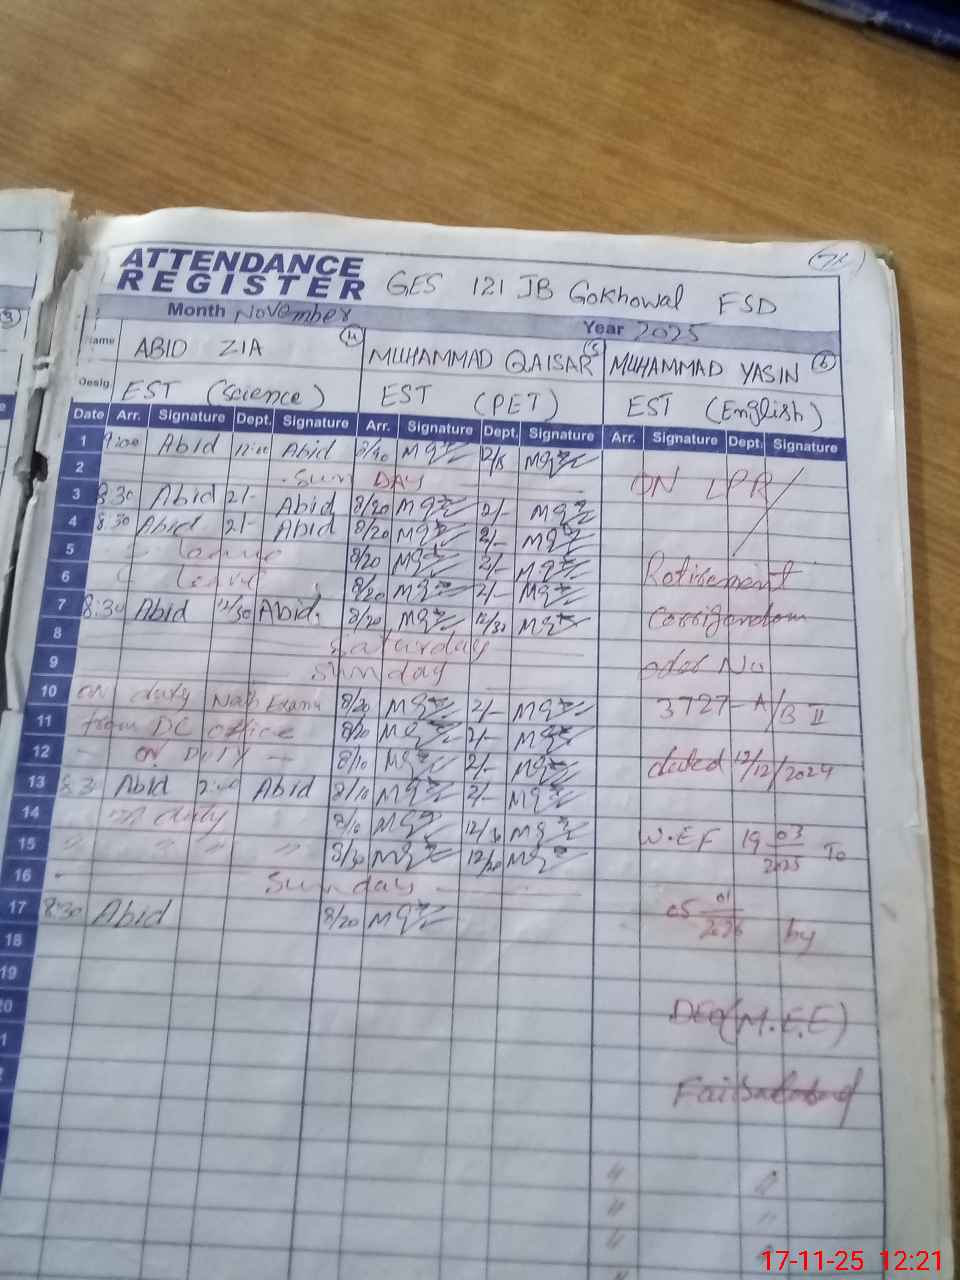 ATTENDANCE
REGISTER
GES 121 JB Gokhowal FSD
Month November
Year 2025
Name ABID ZIA 4 MUHAMMAD QAISAR 5 MUHAMMAD YASIN 6
Desig. EST (Science) EST (PET) EST (English)
Date Arr. Signature Dept. Signature Arr. Signature Dept. Signature Arr. Signature Dept. Signature
1 9:00 Abid 12:00 Abid
2 Sun DAY ON LPR
3 8:30 Abid 2/- Abid 8/20 2/-
4 8:30 Abid 2/- Abid 8/20 2/-
5 Leave 8/20 2/- Retirement
6 Leave 8/20 2/-
7 8:30 Abid 12/30 Abid 8/20 12/30 Corrigendum
8 Saturday
9 Sunday oder No
10 on duty Exam 8/20 2/- 3727-A/B II
11 from DC office 8/20 2/-
12 on DUTY 8/10 2/- dated 12/12/2024
13 8:30 Abid 2:00 Abid 8/10 2/-
14 on duty 8/10 12/30 W.EF 19 03/2025 To
15 " " " " 8/30 12/30
16 Sunday
17 8:30 Abid 8/20 05 01/2026 by
18
19
20 DEO(M.E.E)
Faisalabad
17-11-25 12:21